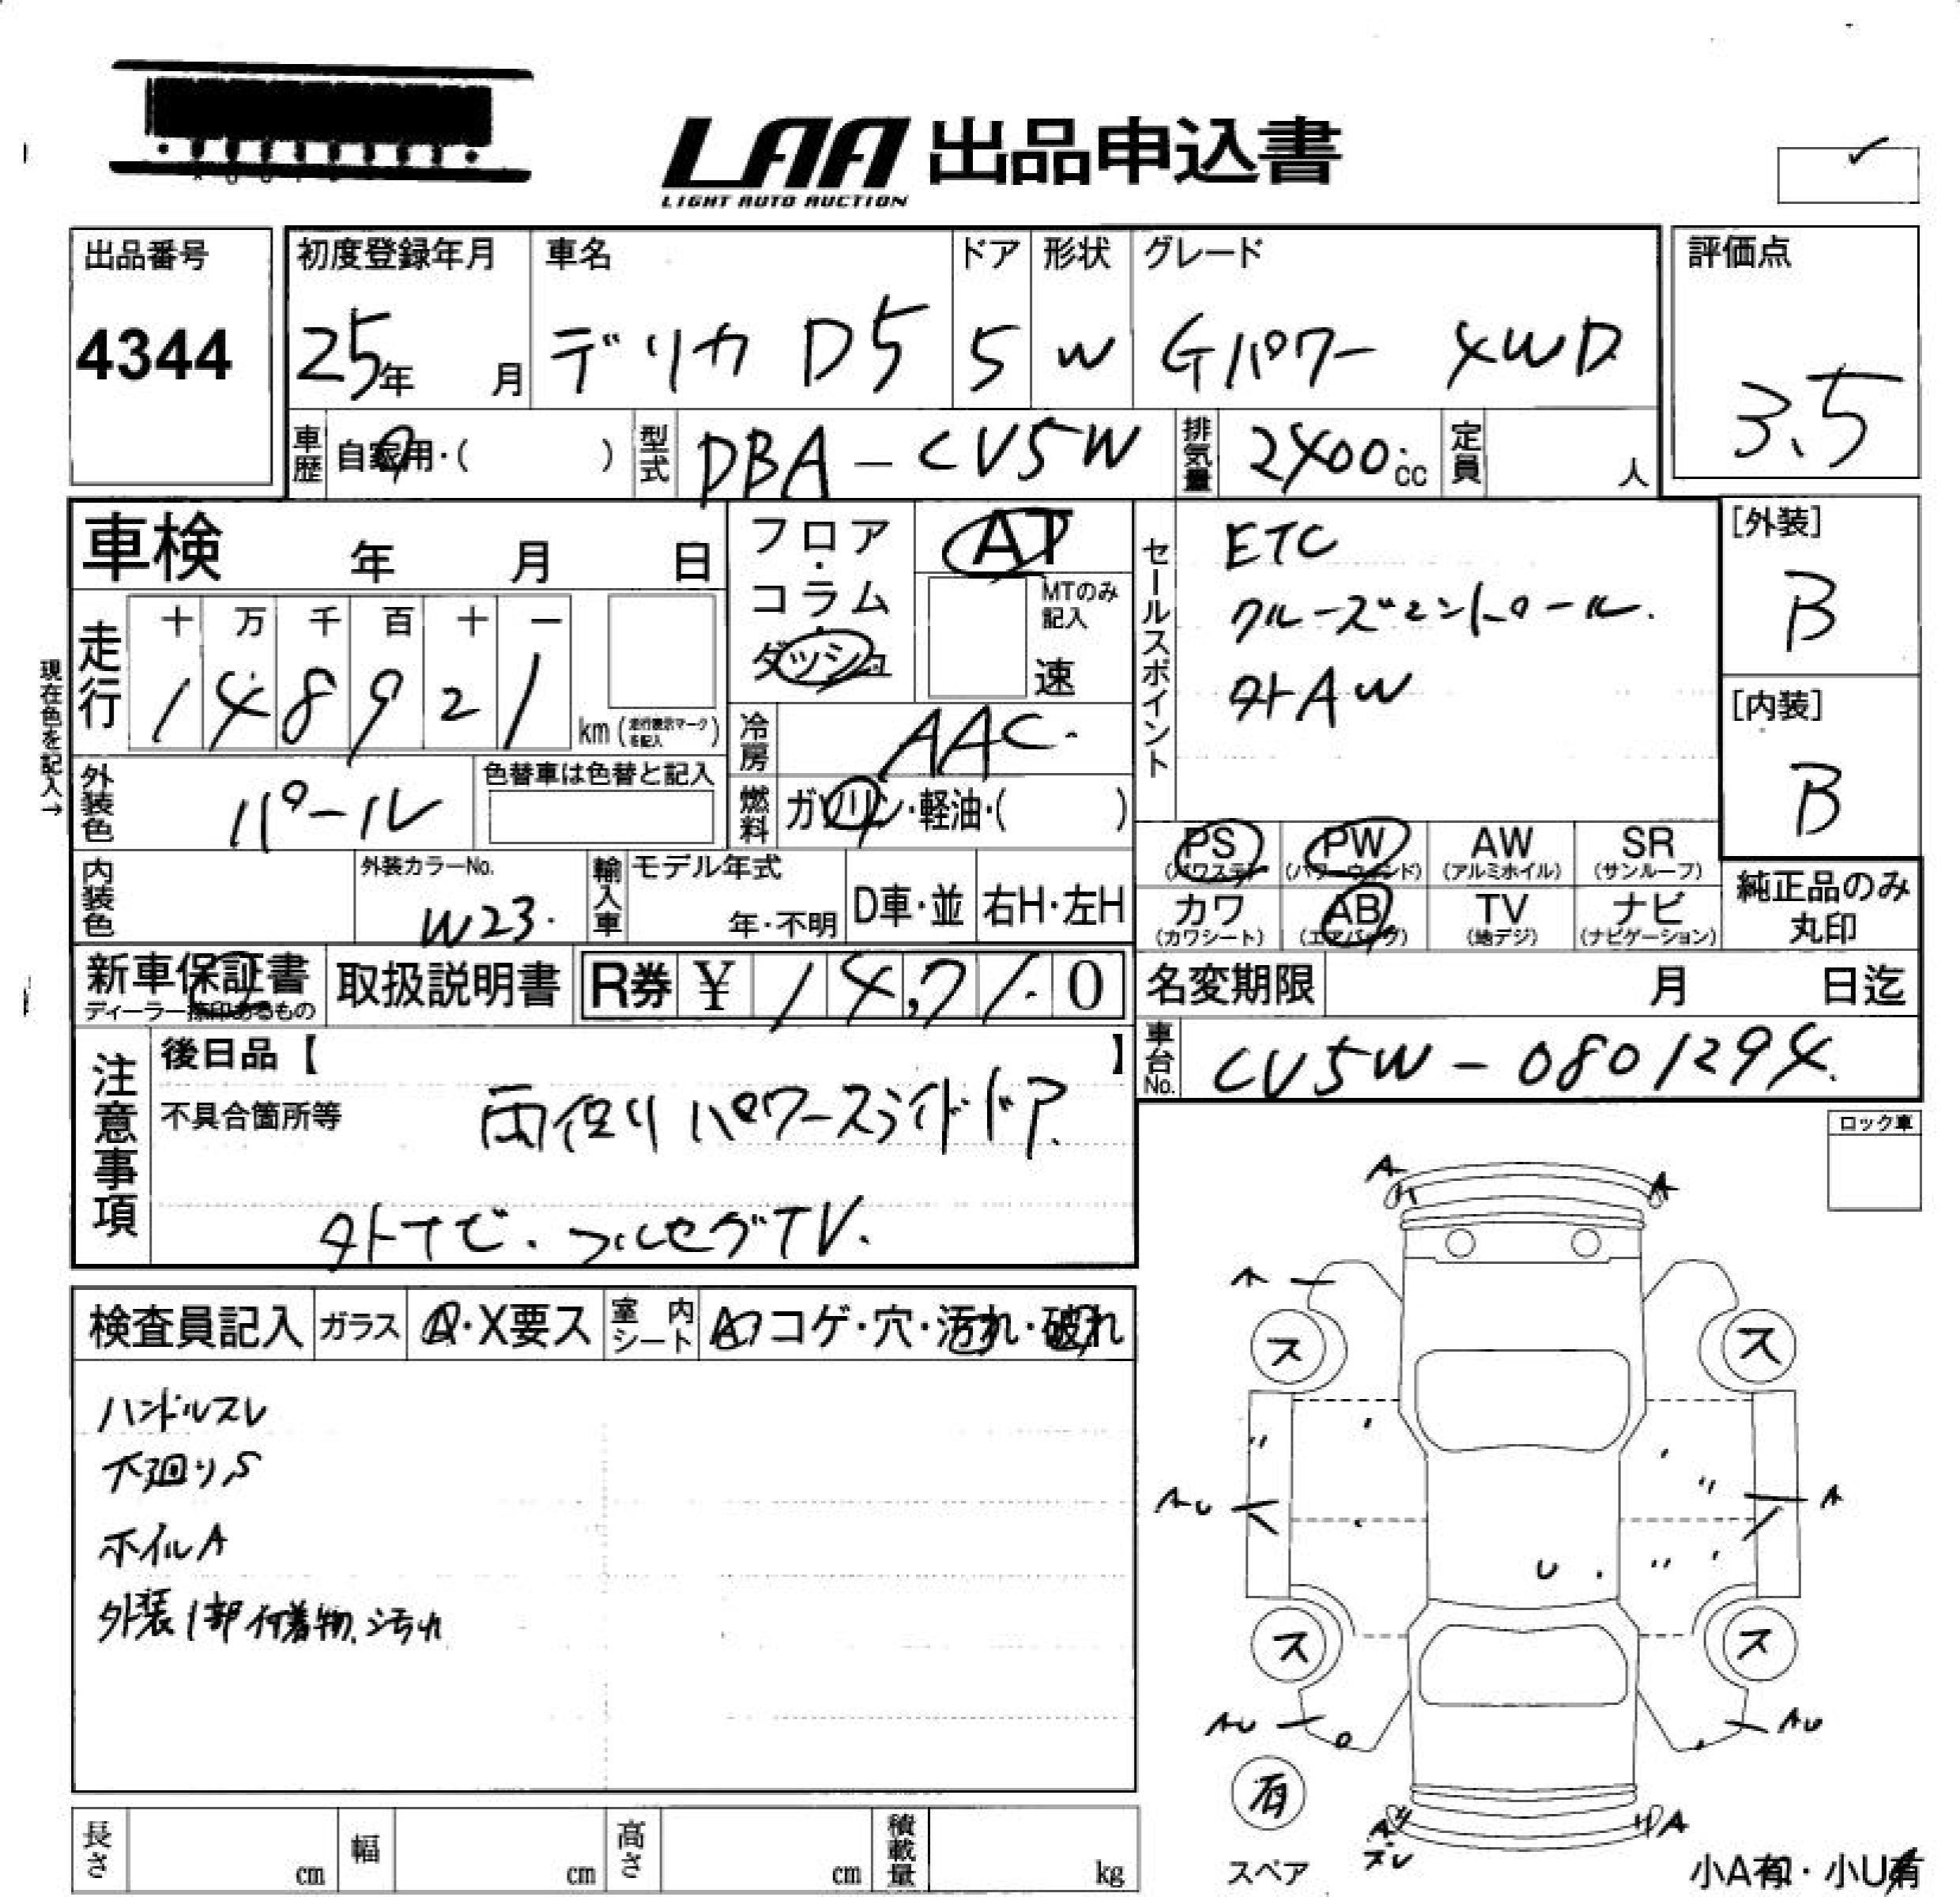 LAA 出品申込書
LIGHT AUTO AUCTION
出品番号
4344
初度登録年月
25年 月
車名
デリカ D5
ドア
5
形状
W
グレード
Gパワー 4WD
評価点
3.5
車歴
自家用・( )
型式
DBA-CV5W
排気量
2400cc
定員
人
車検 年 月 日
フロア・コラム・ダッシュ
AT
MTのみ記入
速
セールスポイント
ETC
クルーズコントロール
外AW
[外装]
B
[内装]
B
現在色を記入→
走行
十 万 千 百 十 一
1 4 8 9 2 1
km (走行表示マークを記入)
冷房
AAC
外装色
パール
色替車は色替と記入
燃料
ガソリン・軽油・( )
PS
(パワステ)
PW
(パワーウィンド)
AW
(アルミホイル)
SR
(サンルーフ)
カワ
(カワシート)
AB
(エアバッグ)
TV
(地デジ)
ナビ
(ナビゲーション)
純正品のみ
丸印
内装色
外装カラーNo.
W23
輸入車
モデル年式
年・不明
D車・並
右H・左H
新車保証書
ディーラー捺印あるもの
取扱説明書
R券 ¥ 14,710
名変期限 月 日迄
車台No.
CV5W-0801294
注意事項
後日品【 】
不具合箇所等
両側パワースライドドア
外ナビ. フルセグTV.
ロック車
検査員記入
ガラス
A・X要ス
室内シート
A・コゲ・穴・汚れ・破れ
ハンドルスレ
下廻りS
ホイルA
外装1部付着物、汚れ
A A
A
ス ス
AU A
U
ス ス
AU AU
有
スペア
A A
ズレ
小A有・小U有
長さ cm
幅 cm
高さ cm
積載量 kg